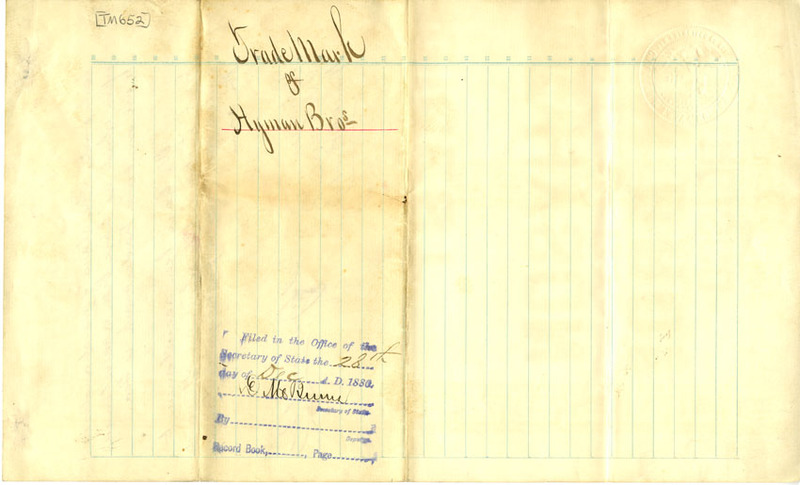 [TM652]
Trade Mark
of
Hyman Bros
Filed in the Office of the
Secretary of State the 28th
day of Dec A. D. 1880.
Secretary of State
By
Deputy.
Record Book, , Page